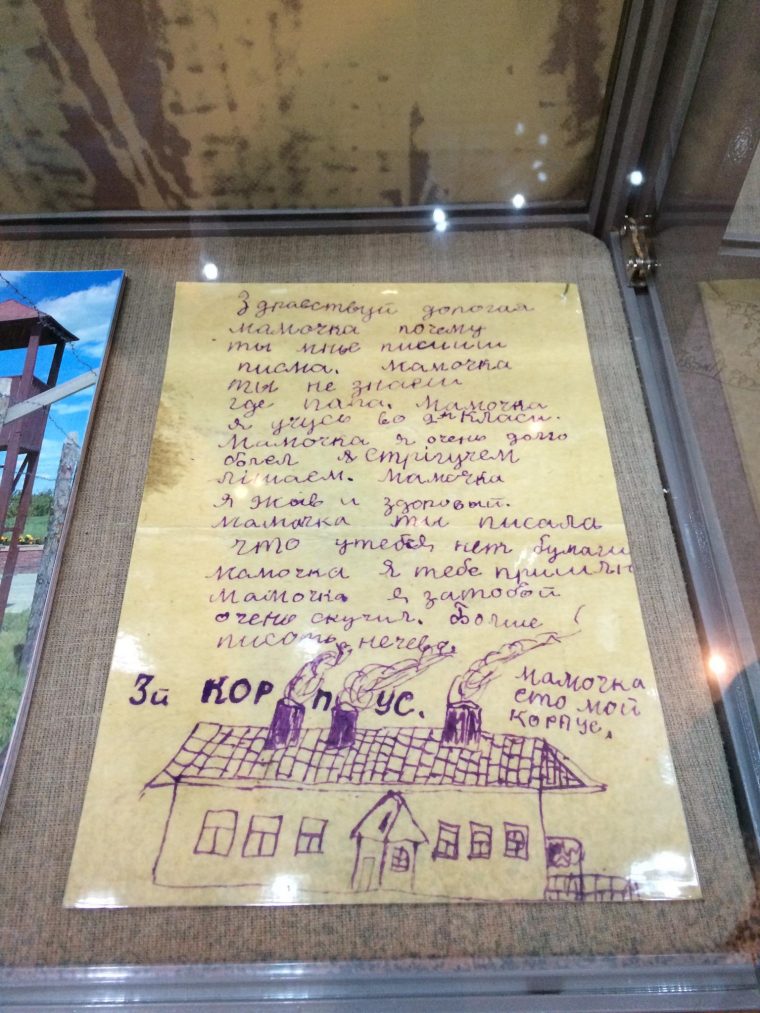 Здравствуй дорогая
мамочка почему
ты мнье писшш
писма. мамочка
ты не знаеш
где папа. Мамочка
я учусь во 2м класи.
Мамочка я очень долго
болел я Стрігучем
лішаем. мамочка
я жив и здоровый.
мамочка ти писала
что утебя нет бумаги
мамочка я тебе пришлю
мамочка я затобой
очень скучил. Болше
писать нечево.
3й КОРПУС.
мамочка
ето мой
корпус.